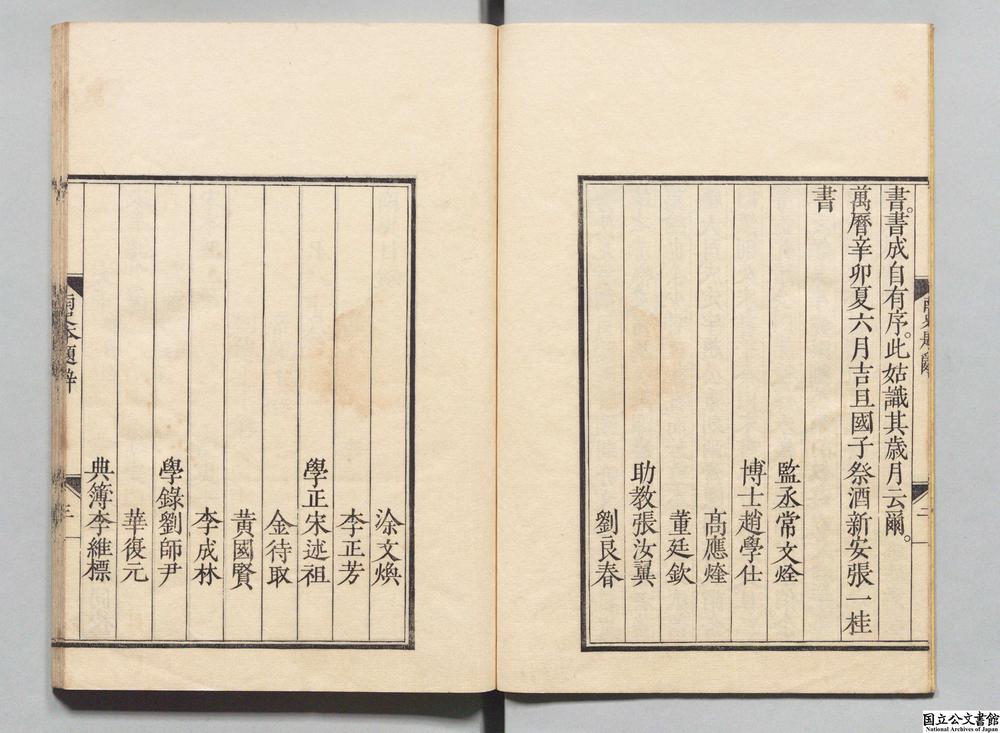 書。書成自有序。此姑識其歲月云爾。
萬曆辛卯夏六月吉旦國子祭酒新安張一桂
書
監丞常文烇
博士趙學仕
高應煃
董廷欽
助教張汝翼
劉良春
二
涂文煥
李正芳
學正宋述祖
金待取
黃國賢
李成林
學錄劉師尹
華復元
典簿李維標
題辭
三
国立公文書館
National Archives of Japan